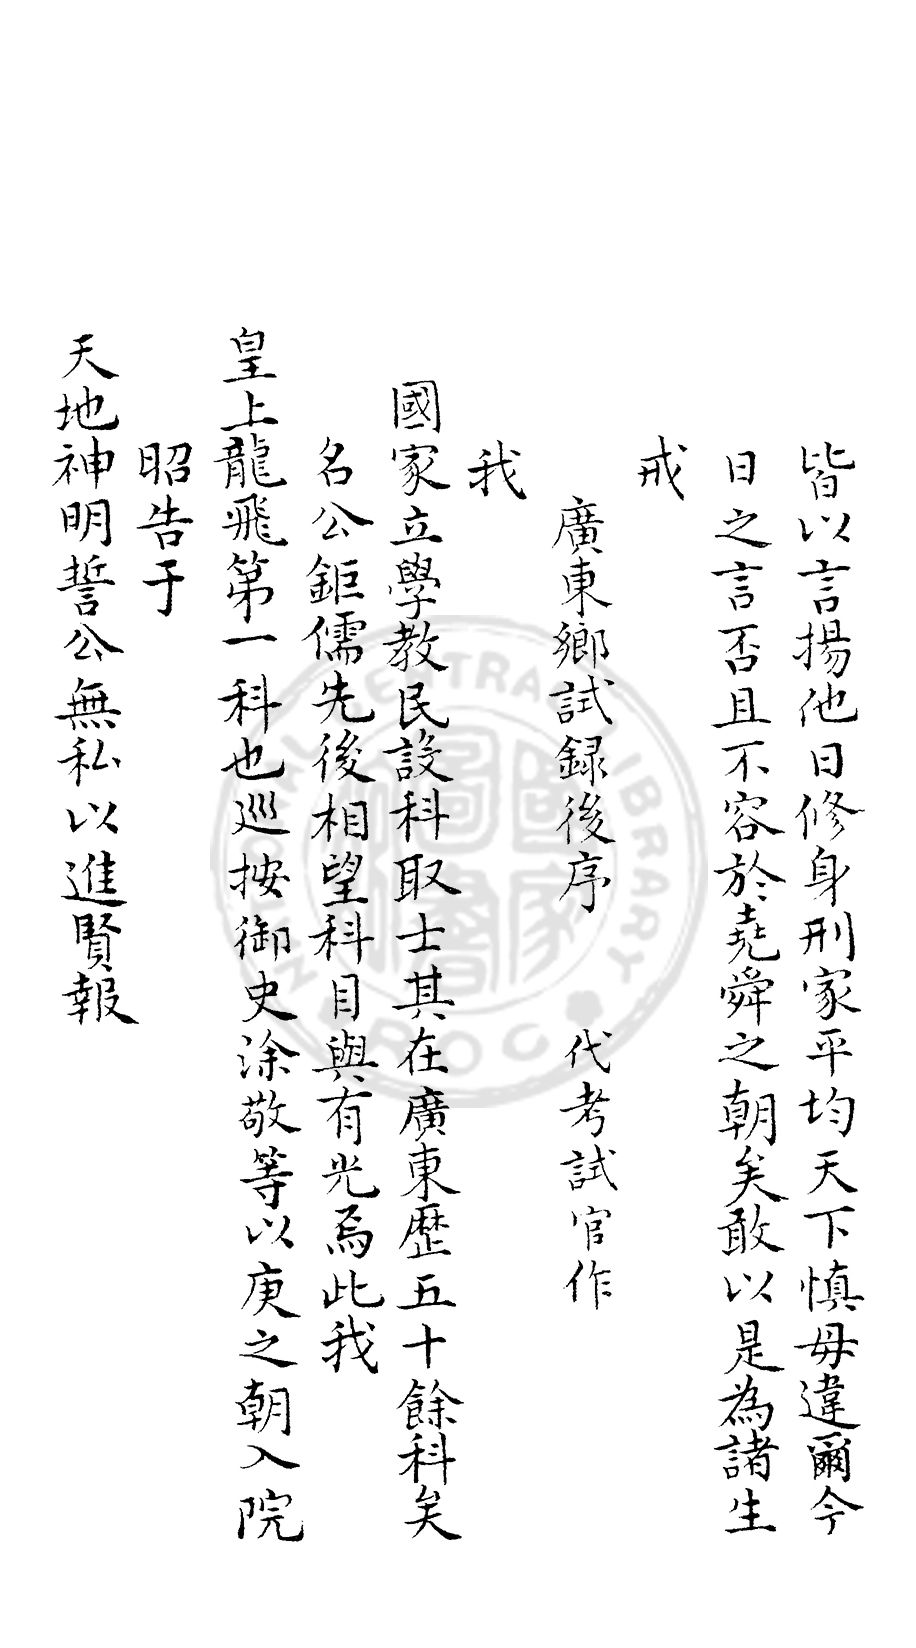 皆以言揚他日修身刑家平均天下慎毋違爾今
日之言否且不容於堯舜之朝矣敢以是為諸生
戒
廣東鄉試録後序　代考試官作
我
國家立學教民設科取士其在廣東歷五十餘科矣
名公鉅儒先後相望科目與有光焉此我
皇上龍飛第一科也巡按御史涂敬等以庚之朝入院
昭告于
天地神明誓公無私以進賢報
NATIONAL CENTRAL LIBRARY R.O.C.
國家圖書館